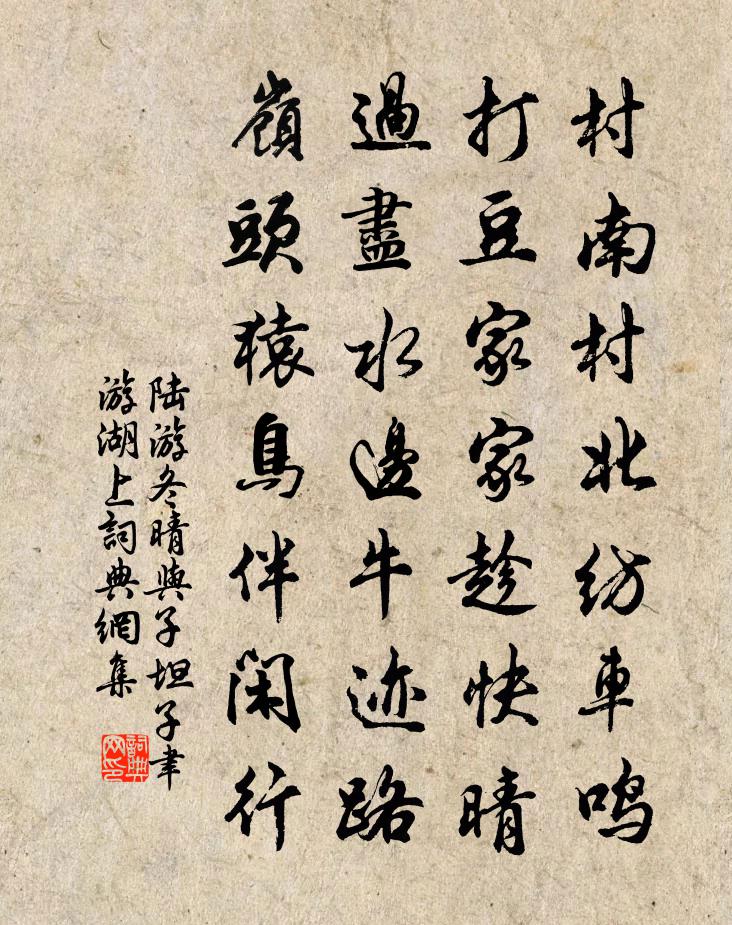 村南村北纺車鸣
打豆家家趁快晴
過盡水邊牛迹路
嶺頭猿鳥伴閑行
陆游冬晴與子坦子聿
游湖上詞典網集
詞典
网印